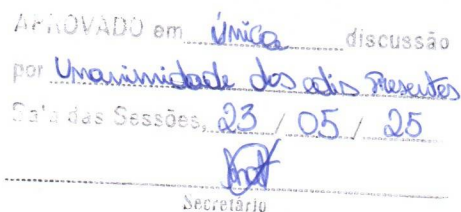 APROVADO em Única discussão
por Unanimidade dos edis Presentes
Sala das Sessões, 23 / 05 / 25
Secretário